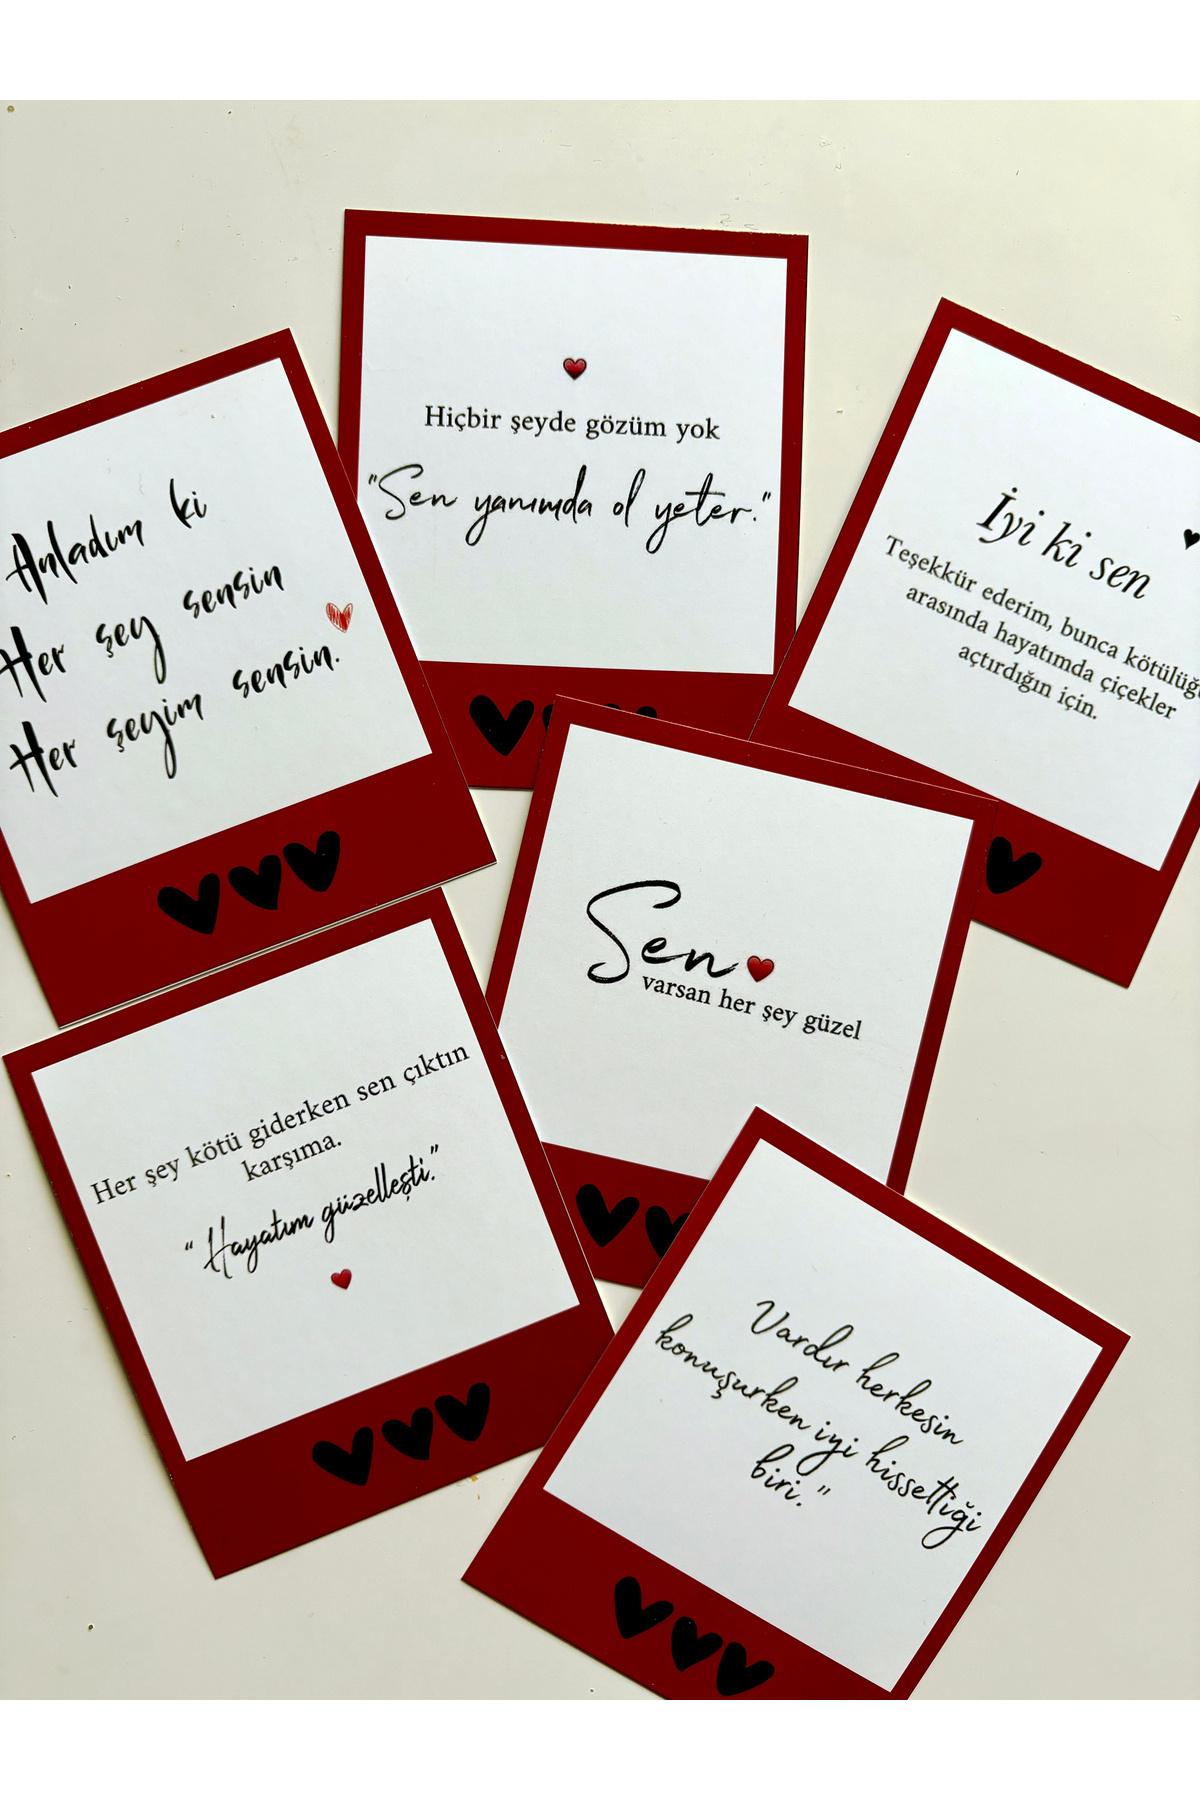 Hiçbir şeyde gözüm yok
"Sen yanımda ol yeter."
Anladım ki
Her şey sensin
Her şeyim sensin.
İyi ki sen
Teşekkür ederim, bunca kötülüğ
arasında hayatımda çiçekler
açtırdığın için.
Sen
varsan her şey güzel
Her şey kötü giderken sen çıktın
karşıma.
"Hayatım güzelleşti."
Vardır herkesin
konuşurken iyi hissettiği
biri."